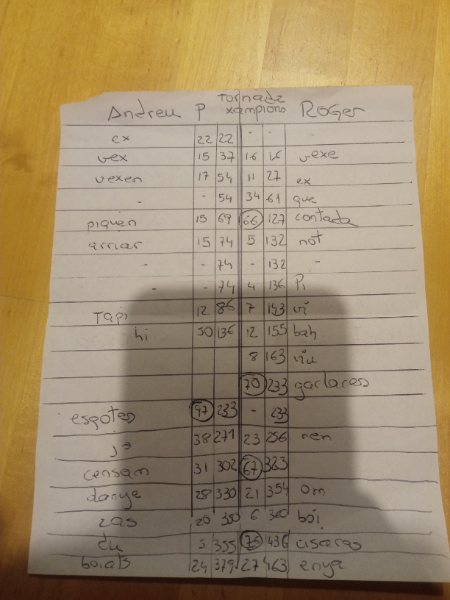 Andreu P Tornada xampions Roger
ex 22 22 - - -
vex 15 37 16 16 vexe
vexen 17 54 11 27 ex
- - 54 34 61 que
piquen 15 69 66 127 contada
arriar 15 74 5 132 not
- - 74 - 132 -
- - 74 4 136 Pi
Tapi 12 86 7 143 vi
hi 50 136 12 155 bah
8 163 viu
70 233 garlaress
espotes 97 233 - 233
ja 38 271 23 256 ren
censam 31 302 67 333
danya 28 330 21 354 om
zas 20 350 6 360 boi
du 5 355 76 436 ciseras
boiats 24 379 27 463 enya